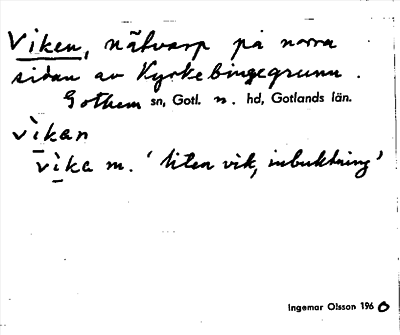 Viken, nätvarp på norra
sidan av Kyrkebingegrunn.
Gothem sn, Gotl. n. hd, Gotlands län.
vikan
vika m. 'liten vik, inbuktning'
Ingemar Olsson 1960